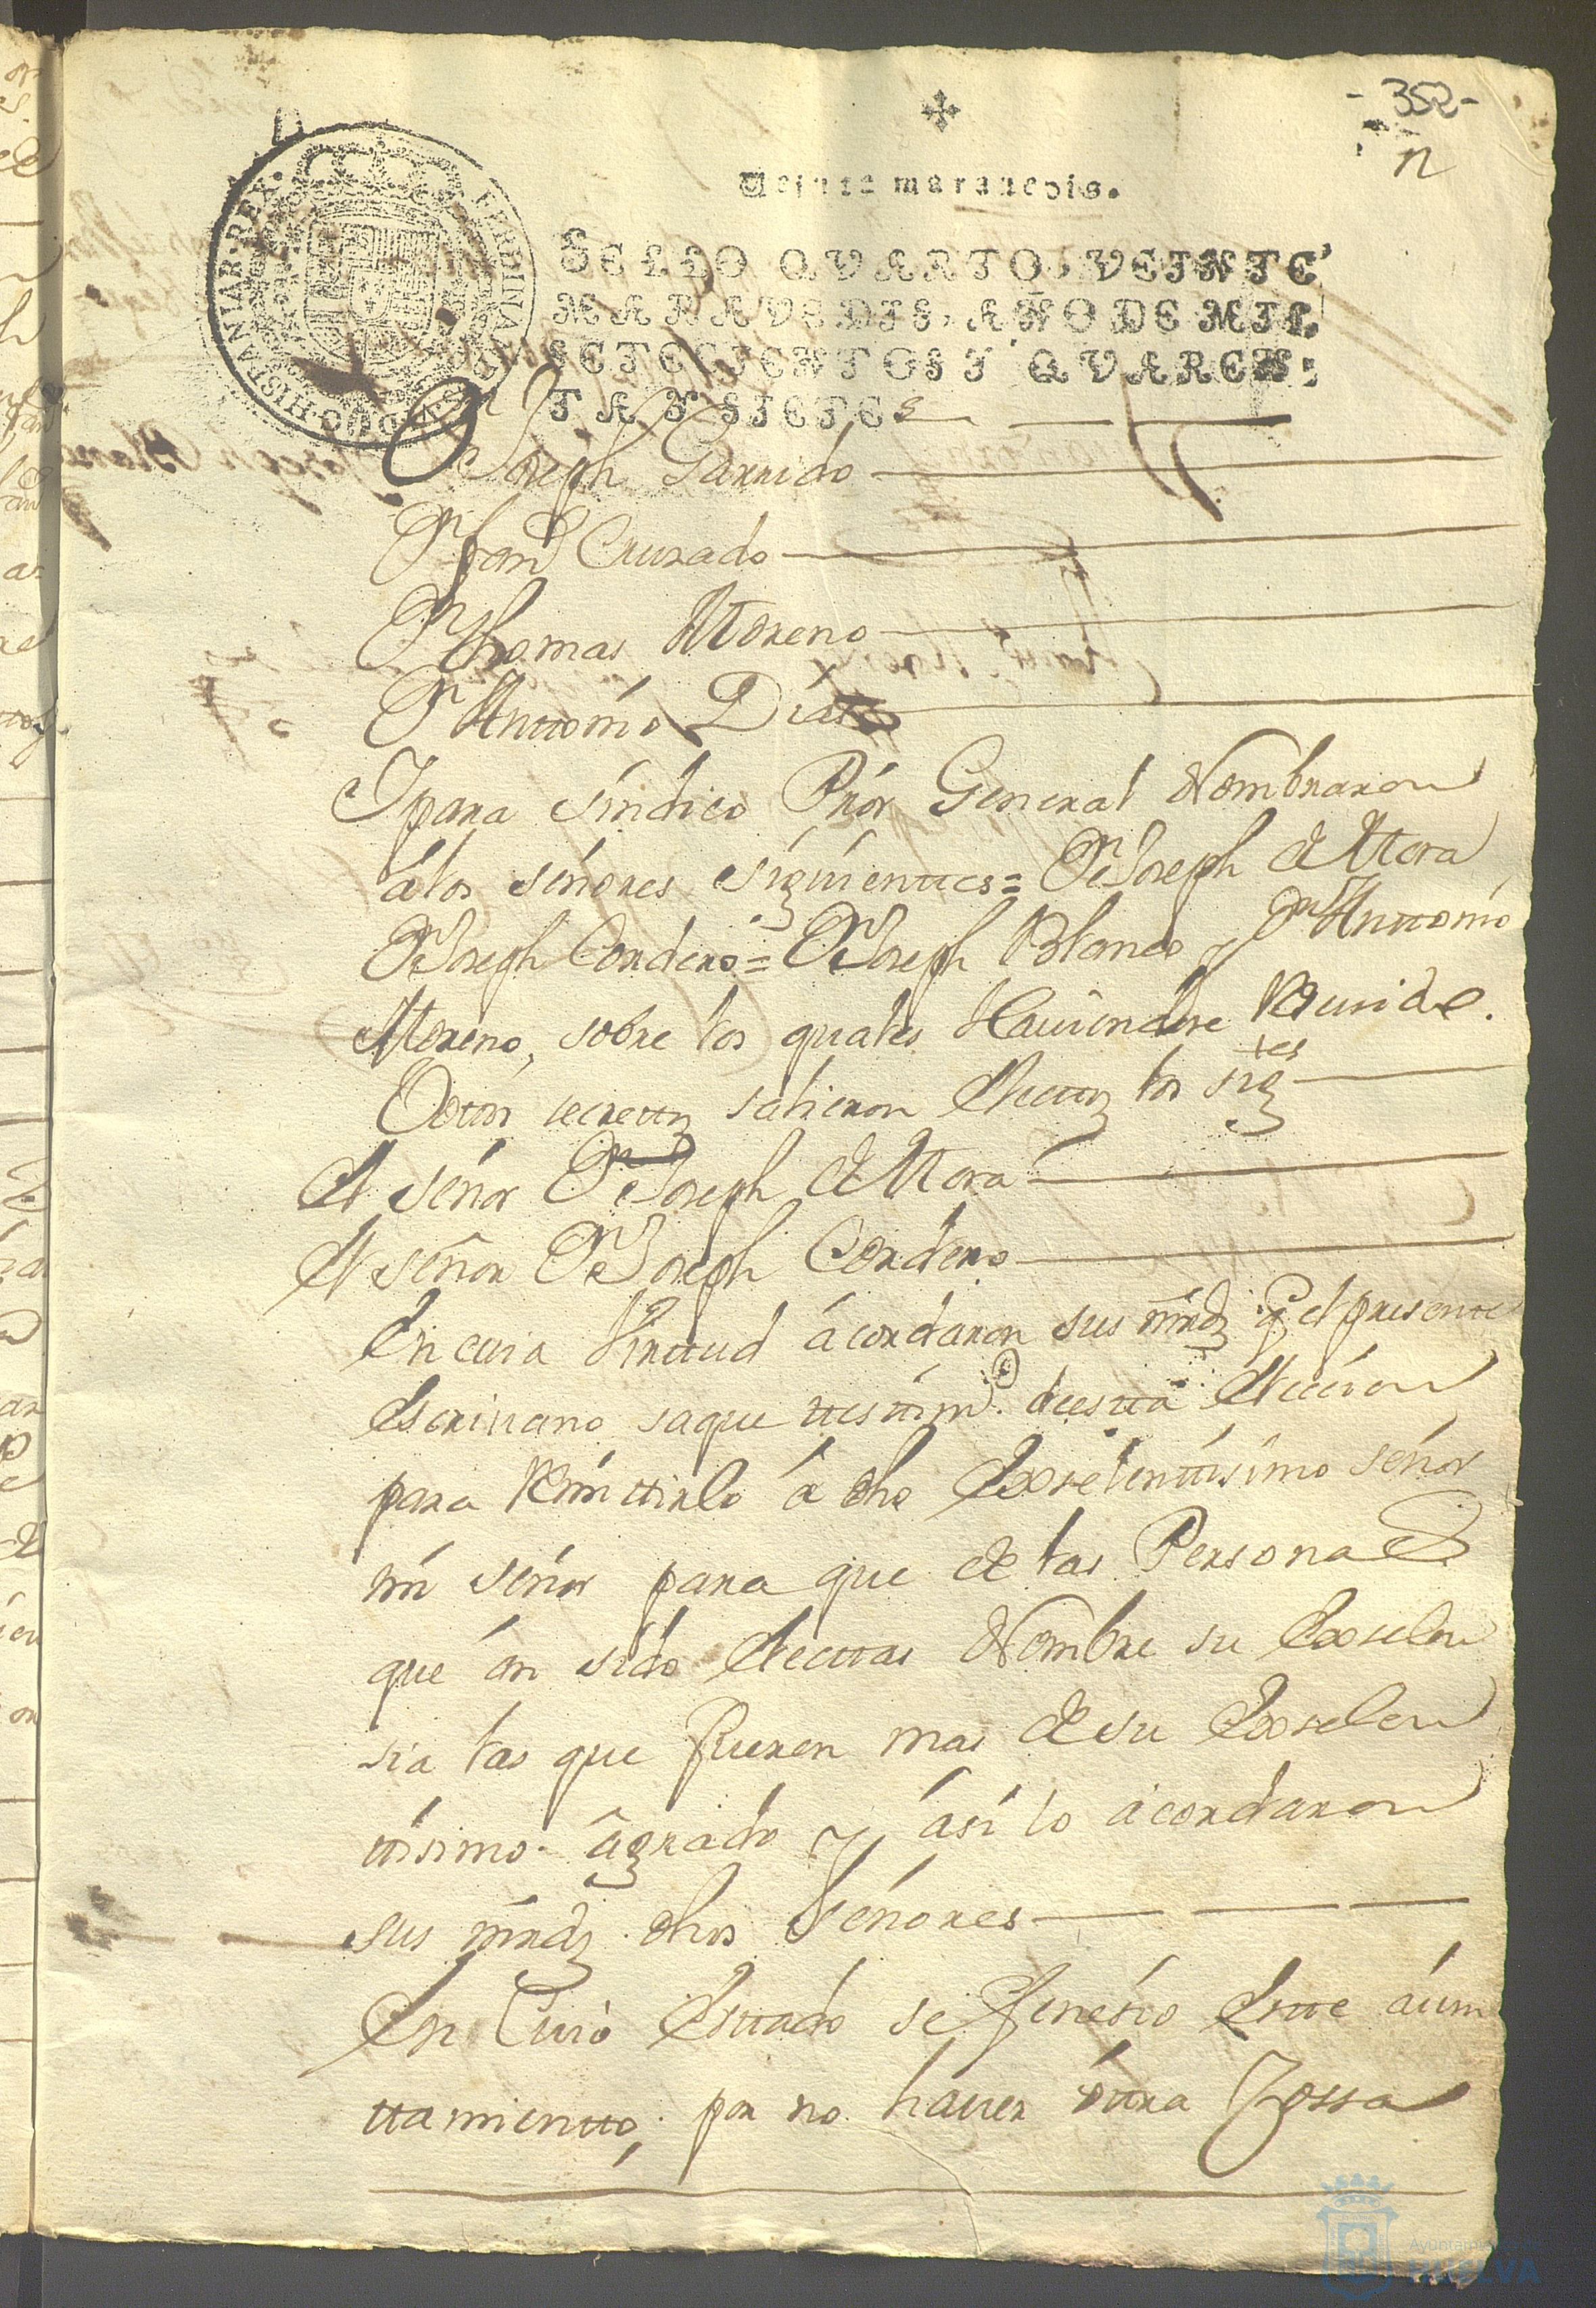 - 352 -
n
Veinte marauedis.
SELLO QVARTO, VEINTE
MARAVEDIS, AÑO DE MIL
SETECIENTOS Y QVAREN-
TA Y SIETE
Dn Joseph Garrido
Dn Juan Cruzado
Dn Thomas Moreno
Dn Anttonio Dias
Ypara síndico Prór General Nombraron
álos señores siguienttes = Dn Joseph de Mora
Dn Joseph Cordero = Dn Joseph Blanco y Dn Anttonio
Moreno, sobre los quales Hauiendose Reunido
Vottos secrettos salieron electtos los sigtes
el señor Dn Joseph de Mora
el señor Dn Joseph Cordero
En cuia Virttud ácordaron sus mrds q el presente
escriuano saque ttesttimo deestta elección
para Remittirlo á dho Exselenttísimo señor
mi señor para que de las Personas
que án sido electtas Nombre su Exselen
sia las que fueren mas de su Exselen
ttísimo ágrado y ási lo ácordaron
sus mrds dhos Señores
En Cuio esttado se fenesio estte áiun
ttamientto por no háuer óttra Cossa
Ayuntamiento de
HUELVA